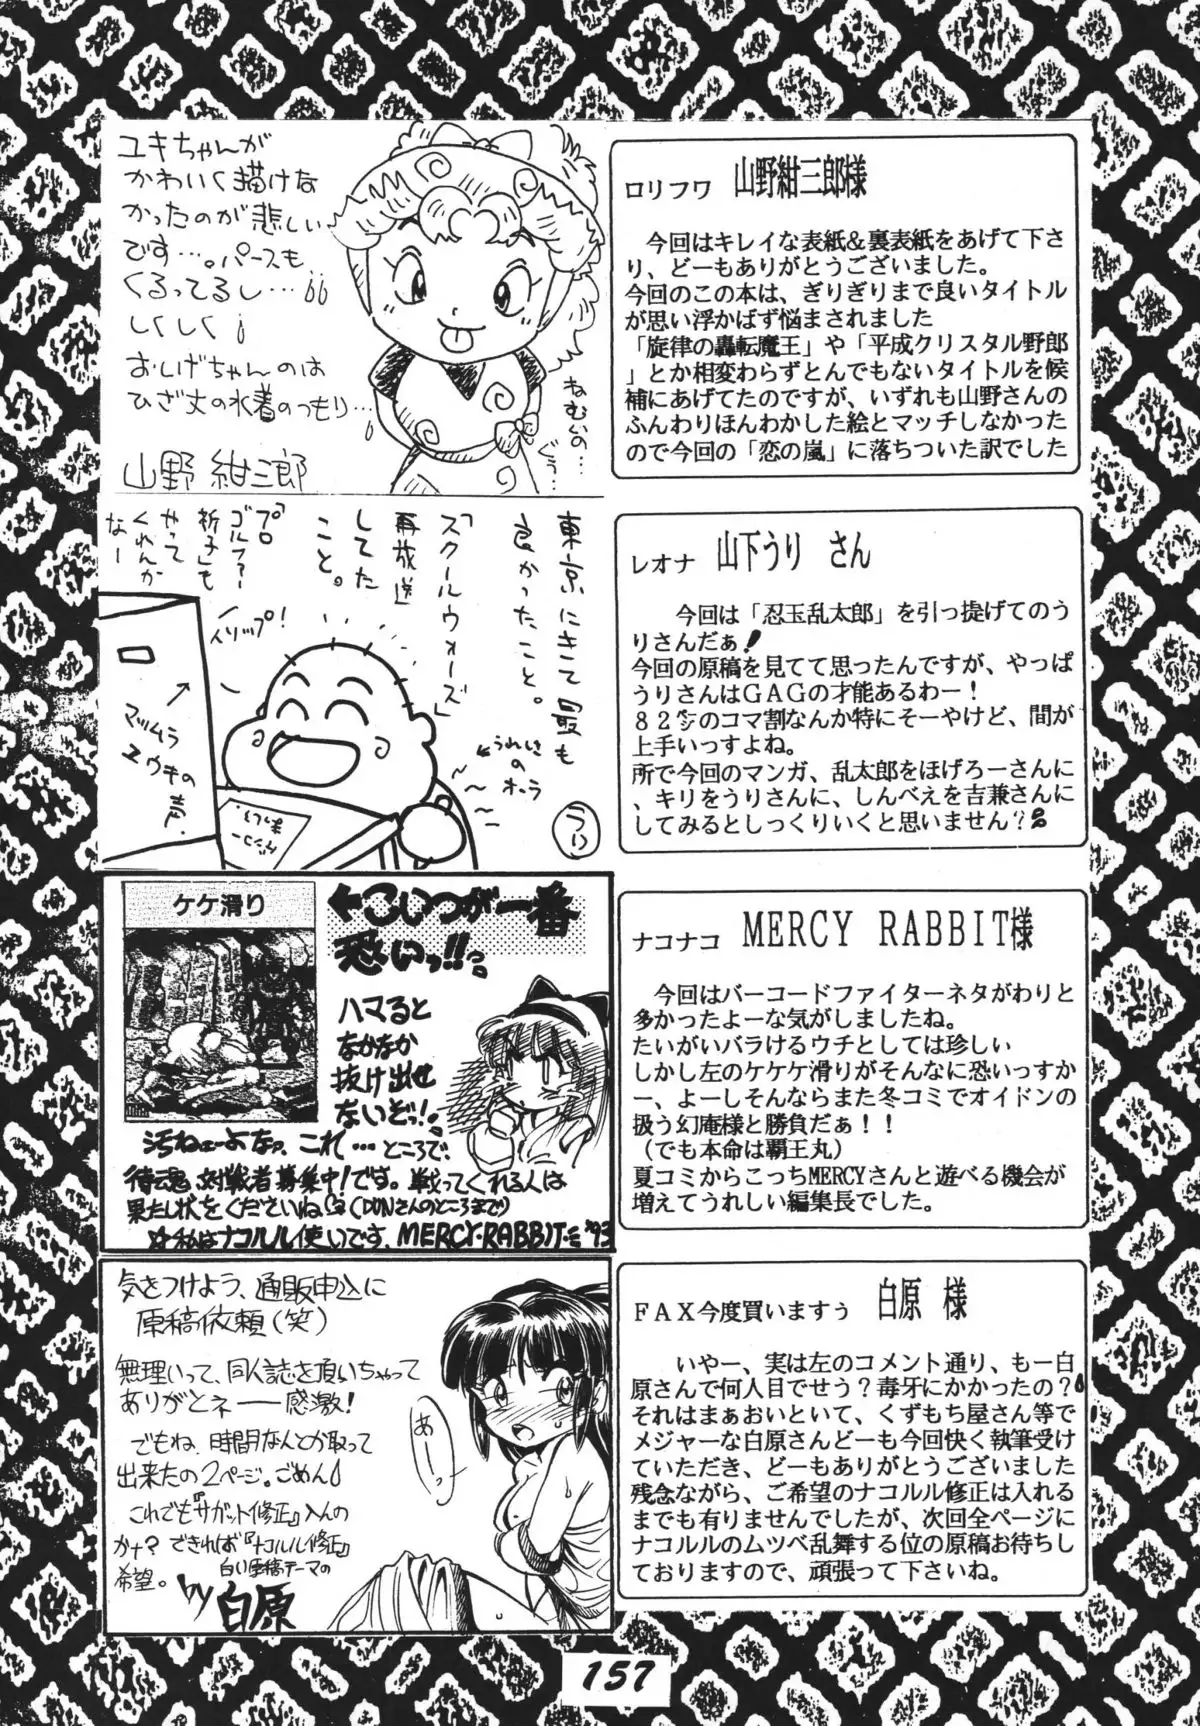 ユキちゃんが
かわいく描けな
かったのが悲しい
です…。パースも
くるってるし…
しくしく
おしげちゃんのは
ひざ丈の水着のつもり…
山野紺三郎
ねむいの…
ぐぅ…
ロリフワ 山野紺三郎様
今回はキレイな表紙&裏表紙をあげて下さ
り、どーもありがとうございました。
今回のこの本は、ぎりぎりまで良いタイトル
が思い浮かばず悩まされました
「旋律の轟転魔王」や「平成クリスタル野郎
」とか相変わらずとんでもないタイトルを候
補にあげてたのですが、いずれも山野さんの
ふんわりほんわかした絵とマッチしなかった
ので今回の「恋の嵐」に落ちついた訳でした
東京にきて最も
良かったこと。
「スクールウォーズ」
再放送
してた
こと。
「プロ
ゴルファー
祈子」も
やって
くれんか
なー
イソップ!
マツムラ
ユウキの
声
うれしさ
の
オーラ
うり
レオナ 山下うり さん
今回は「忍玉乱太郎」を引っ提げてのう
りさんだぁ!
今回の原稿を見てて思ったんですが、やっぱ
うりさんはGAGの才能あるわー!
82㌻のコマ割なんか特にそーやけど、間が
上手いっすよね。
所で今回のマンガ、乱太郎をほげろーさんに
、キリをうりさんに、しんべえを吉兼さんに
してみるとしっくりいくと思いません?
ケケ滑り
←こいつが一番
恐いっ!!
ハマると
なかなか
抜け出せ
ないぞっ!
汚ねェーよなッ、これ…ところで
侍魂対戦者募集中!です。戦ってくれる人は
果たし状をくださいね(DUNさんのところまで)
☆私はナコルル使いです。MERCY・RABBIT '93
ナコナコ MERCY RABBIT様
今回はバーコードファイターネタがわりと
多かったよーな気がしましたね。
たいがいバラけるウチとしては珍しい
しかし左のケケケ滑りがそんなに恐いっすか
ー、よーしそんならまた冬コミでオイドンの
扱う幻庵様と勝負だぁ!!
(でも本命は覇王丸)
夏コミからこっちMERCYさんと遊べる機会が
増えてうれしい編集長でした。
気をつけよう、通販申込に
原稿依頼(笑)
無理いって、同人誌を頂いちゃって
ありがとネ──感激!
でもね、時間なんとか取って
出来たの2ページ。ごめん
これでも『サガット修正』入んの
かナ?できれば『ナコルル修正』
希望。
白い原稿テーマの
by 白原
あーっ
FAX今度買いますぅ 白原 様
いやー、実は左のコメント通り、もー白
原さんで何人目でせう?毒牙にかかったの?
それはまぁおいといて、くずもち屋さん等で
メジャーな白原さんどーも今回快く執筆受け
ていただき、どーもありがとうございました
残念ながら、ご希望のナコルル修正は入れる
までも有りませんでしたが、次回全ページに
ナコルルのムツベ乱舞する位の原稿お待ちし
ておりますので、頑張って下さいね。
157